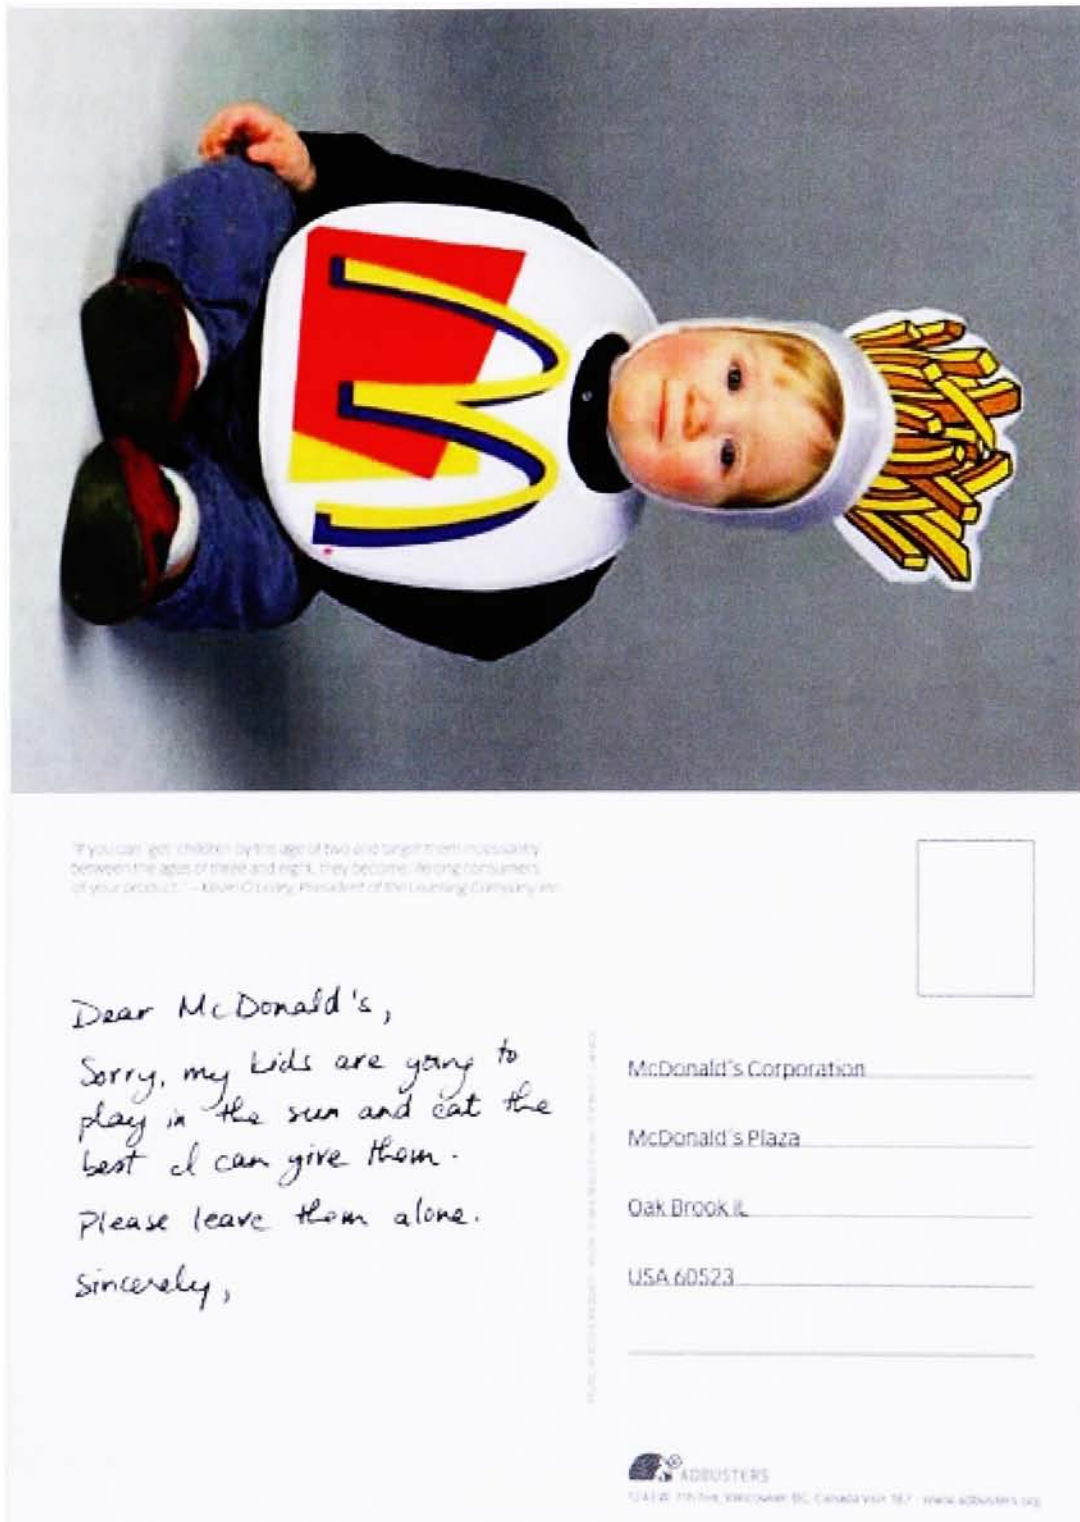 "If you can 'get' children by the age of two and target them incessantly
between the ages of three and eight, they become lifelong consumers
of your product." – Kevin O'Leary, President of the Learning Company Inc.
Dear McDonald's,
Sorry, my kids are going to
play in the sun and eat the
best I can give them.
Please leave them alone.
Sincerely,
McDonald's Corporation
McDonald's Plaza
Oak Brook IL
USA 60523
ADBUSTERS
1243 W. 7th Ave, Vancouver BC, Canada V6H 1B7 - www.adbusters.org